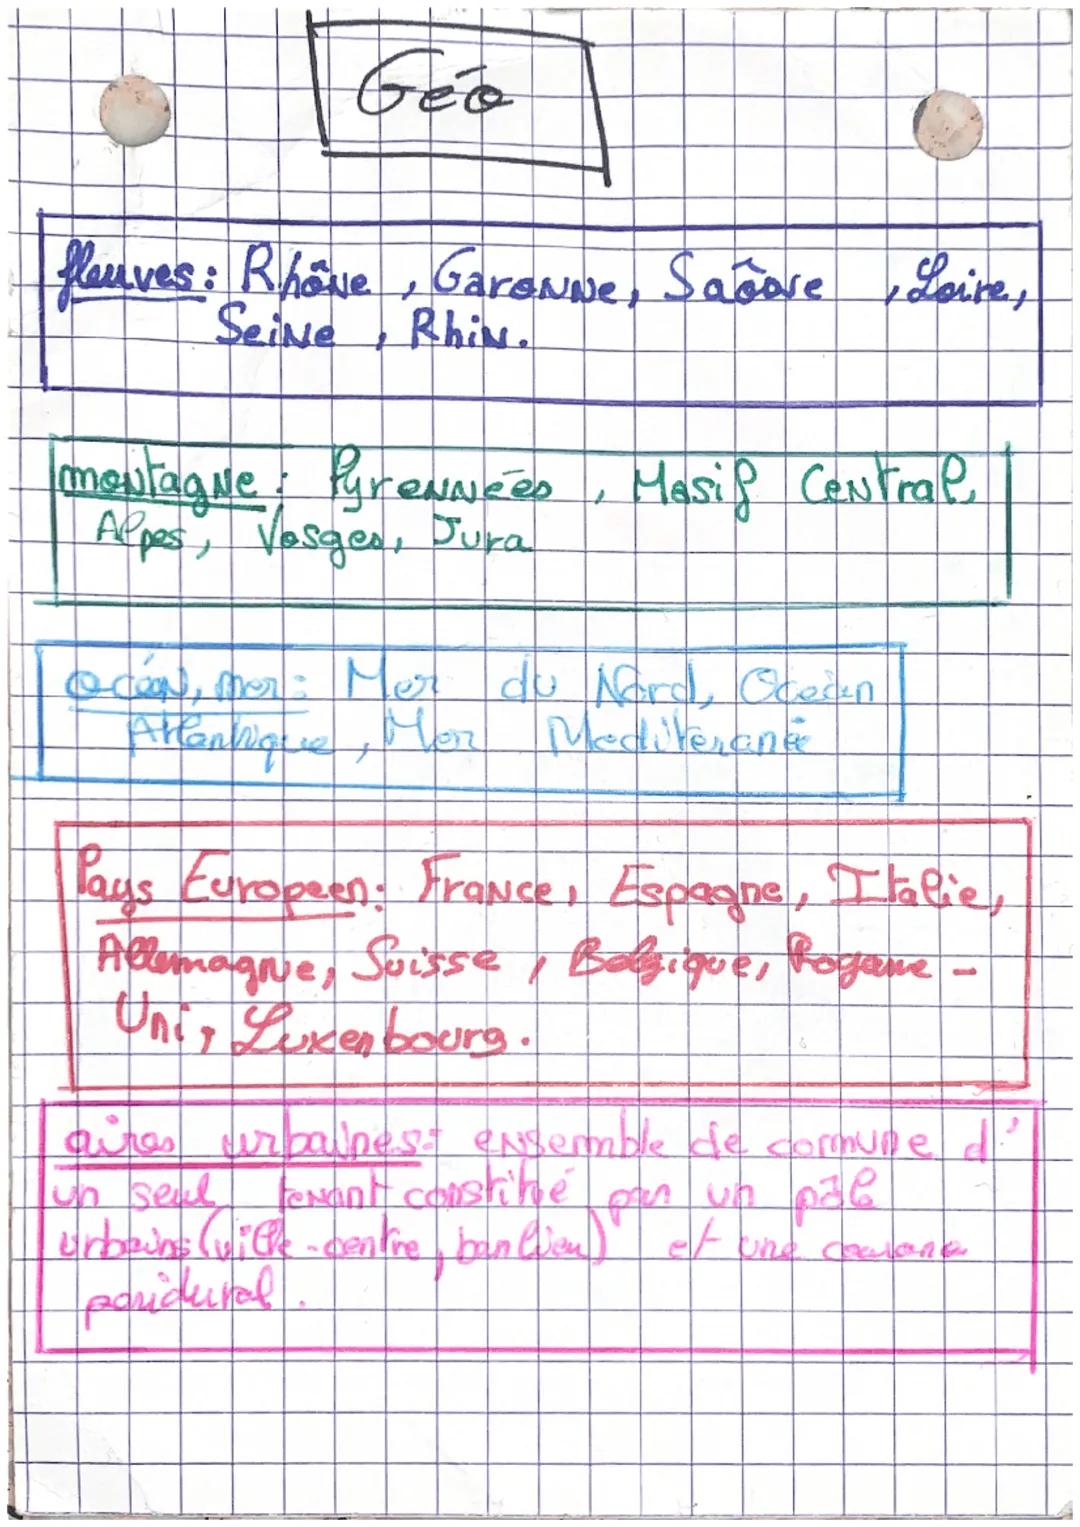 Géo
fleuves : Rhône , Garonne, Saôone , Loire,
Seine , Rhin.
montagne : Pyrennées , Masif Central,
Alpes, Vosges, Jura
océan, mer : Mer du Nord, Océan
Atlantique, Mer Mediterané
Pays Europeen : France, Espagne, Italie,
Allemagne, Suisse , Belgique, Royaume -
Uni, Luxenbourg.
aires urbaines : ensemble de commune d'
un seul tenant constitué par un pôle
urbains (ville-centre, banlieu) et une
peridural.